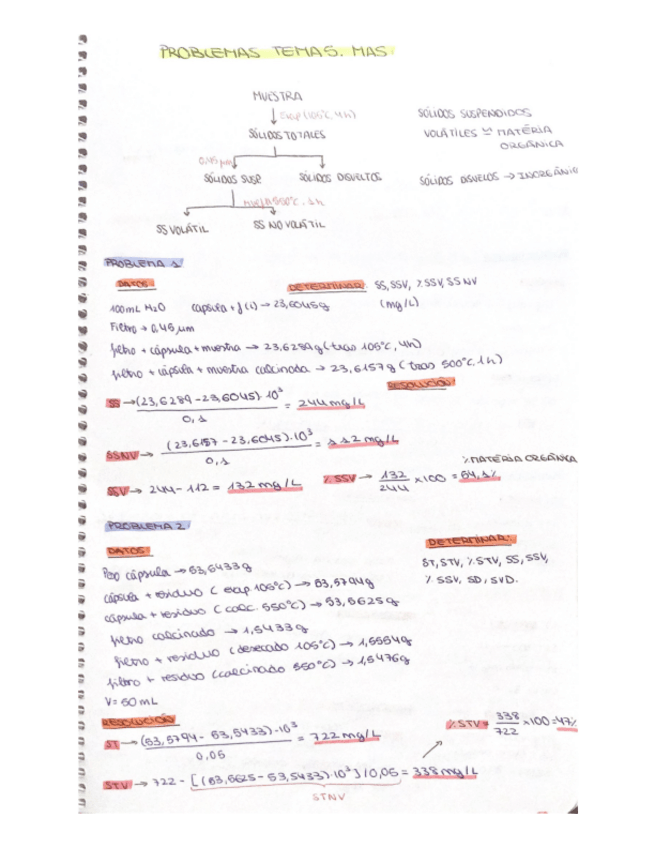 PROBLEMAS TEMA 5. MAS
MUESTRA
Evap (105°C, 4h)
SÓLIDOS TOTALES
0,45 µm
SÓLIDOS SUSP
SÓLIDOS DISUELTOS
550°C. 1h
SS VOLÁTIL
SS NO VOLÁTIL
SÓLIDOS SUSPENDIDOS
VOLÁTILES ≃ MATERIA
ORGÁNICA
SÓLIDOS DISUELTOS → INORGÁNIC
PROBLEMA 1
DATOS
DETERMINAR: SS, SSV, % SSV, SSNV
(mg/L)
100mL H2O cápsula + f(i) → 23,6045g
Filtro → 0,45 µm
filtro + cápsula + muestra → 23,6289 g (tras 105°C, 4h)
filtro + cápsula + muestra calcinada → 23,6157 g (tras 500°C. 1h)
RESOLUCIÓN
SS → (23,6289 - 23,6045)·10³ / 0,1 = 244 mg/L
SSNV → (23,6157 - 23,6045)·10³ / 0,1 = 112 mg/L
SSV → 244 - 112 = 132 mg/L
% MATERIA ORGÁNICA
% SSV → 132/244 ×100 = 54,1%
PROBLEMA 2
DATOS
DETERMINAR:
ST, STV, % STV, SS, SSV,
% SSV, SD, SVD.
Peso cápsula → 53,5433 g
cápsula + residuo (evap 105°C) → 53,5794 g
cápsula + residuo (calc. 550°C) → 53,5625 g
filtro calcinado → 1,5433 g
filtro + residuo (desecado 105°C) → 1,5554 g
filtro + residuo (calcinado 550°C) → 1,5476 g
V = 50 mL
RESOLUCIÓN
ST → (53,5794 - 53,5433)·10³ / 0,05 = 722 mg/L
% STV → 338/722 ×100 = 47%
STV → 722 - [(53,5625 - 53,5433)·10³]/0,05 = 338 mg/L
STNV